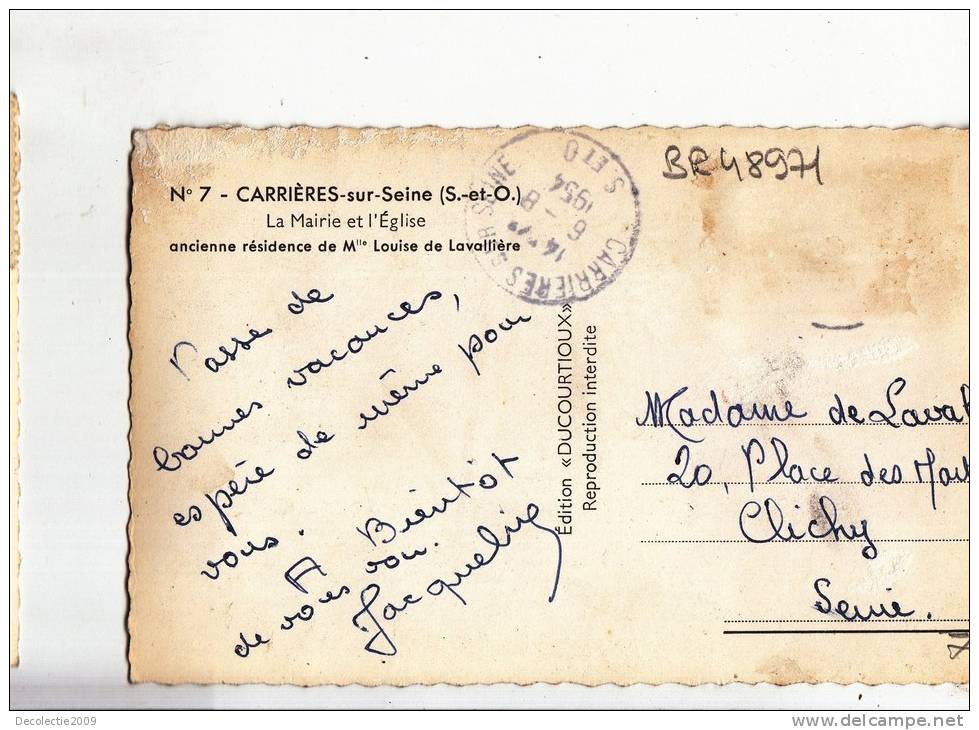 BR48971
N° 7 - CARRIÈRES-sur-Seine (S.-et-O.)
La Mairie et l'Église
ancienne résidence de Mlle Louise de Lavallière
CARRIÈRES SUR SEINE
S. ET O
14H
6 - 8
1954
Passe de
bonnes vacances,
espère de même pour
vous.
A Bientôt
de vous voir.
Jacqueline
Édition «DUCOURTIOUX»
Reproduction interdite
Madame de Laval
20, Place des Mar
Clichy
Seine.
Decolectie2009
www.delcampe.net